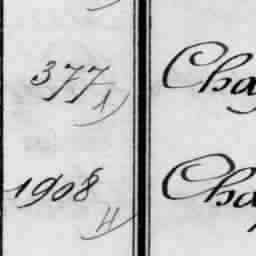 377 1) Cha
1908 4) Cha